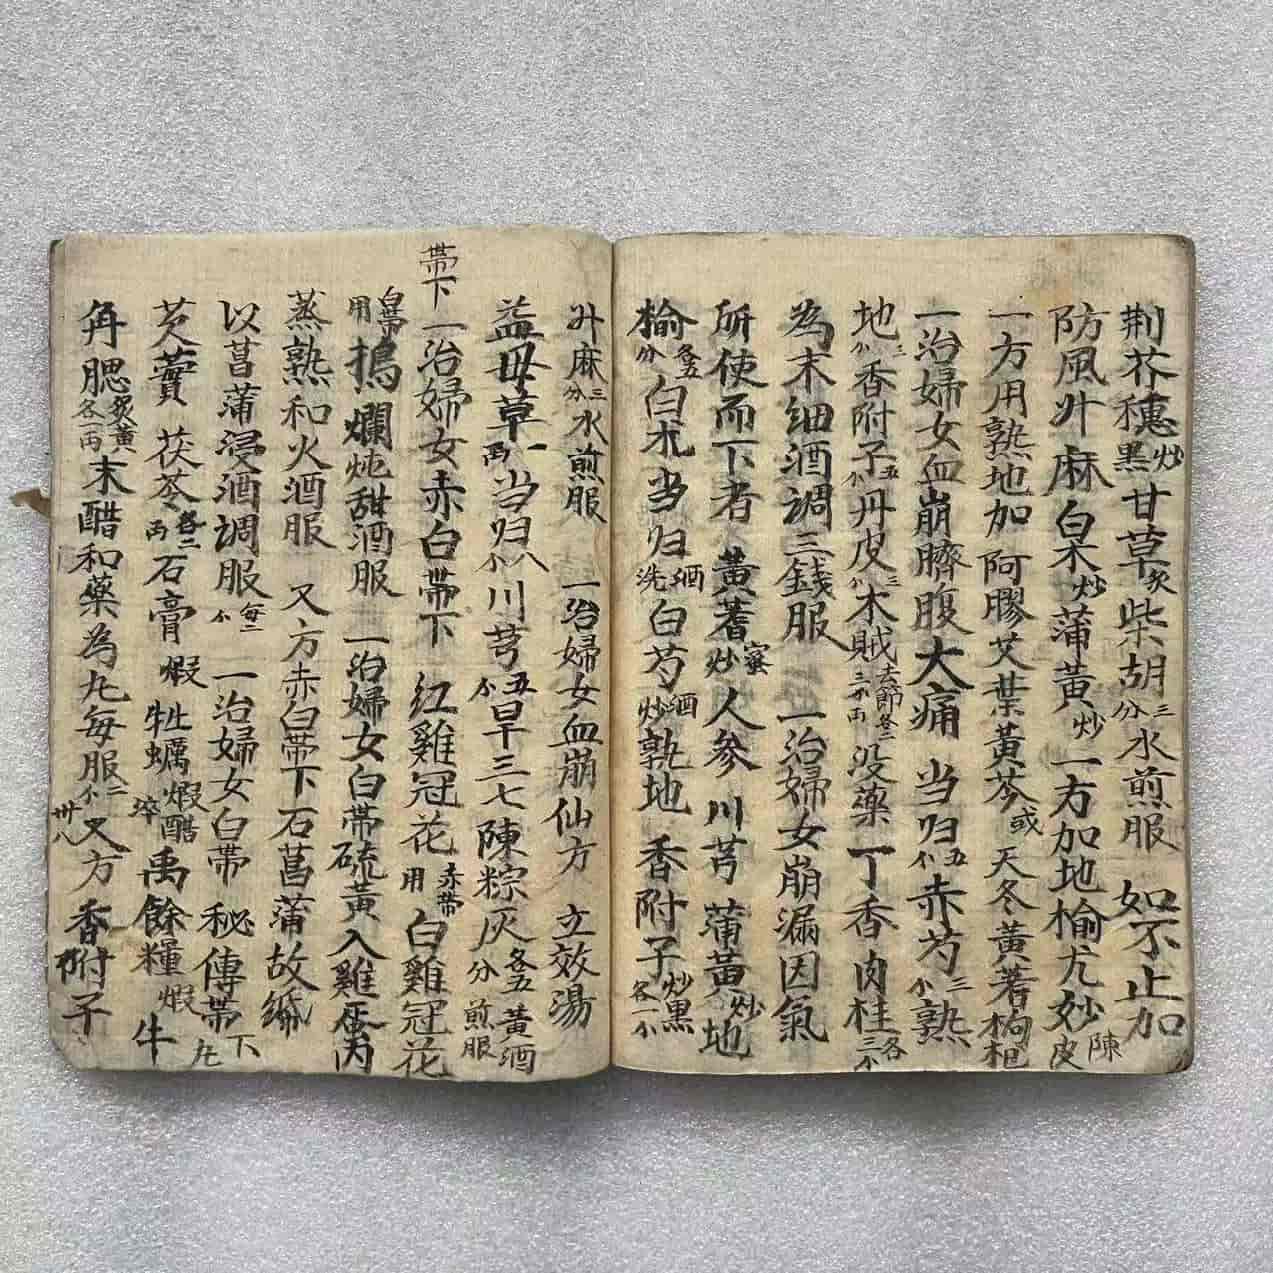 荆芥穗炒黑甘草炙柴胡三分水煎服 如不止加
防風升麻白朮炒蒲黃炒一方加地榆尤妙陳皮
一方用熟地加阿膠艾葉黃芩或天冬黃著枸杞
一治婦女血崩臍腹大痛 当归五小赤芍三小熟
地三小香附子五小丹皮三小木賊去節各三不兩没藥丁香肉桂各三小
為末细酒调三錢服 一治婦女崩漏因氣
所使而下者 黃著蜜炒人參 川芎 蒲黃炒地
榆各五分白朮当归酒洗白芍酒炒熟地 香附子炒黑各一小
升麻三分水煎服 一治婦女血崩仙方 立效湯
益母草一兩当归八小川芎五小旱三七陳粽灰各五分黃酒煎服
帶下一治婦女赤白帶下 红雞冠花赤帶用白雞冠花
白帶用搗爛炖甜酒服 一治婦女白帶硫黃入雞蛋內
蒸熟和火酒服 又方赤白帶下石菖蒲故紙
以菖蒲浸酒调服每二小 一治婦女白帶 秘傳帶下丸
芡實 茯苓各二兩石膏煆 牡蠣煆醋淬禹餘糧煆 牛
角腮炙黃各一兩末醋和藥為丸每服二小又方 香附子
卅八